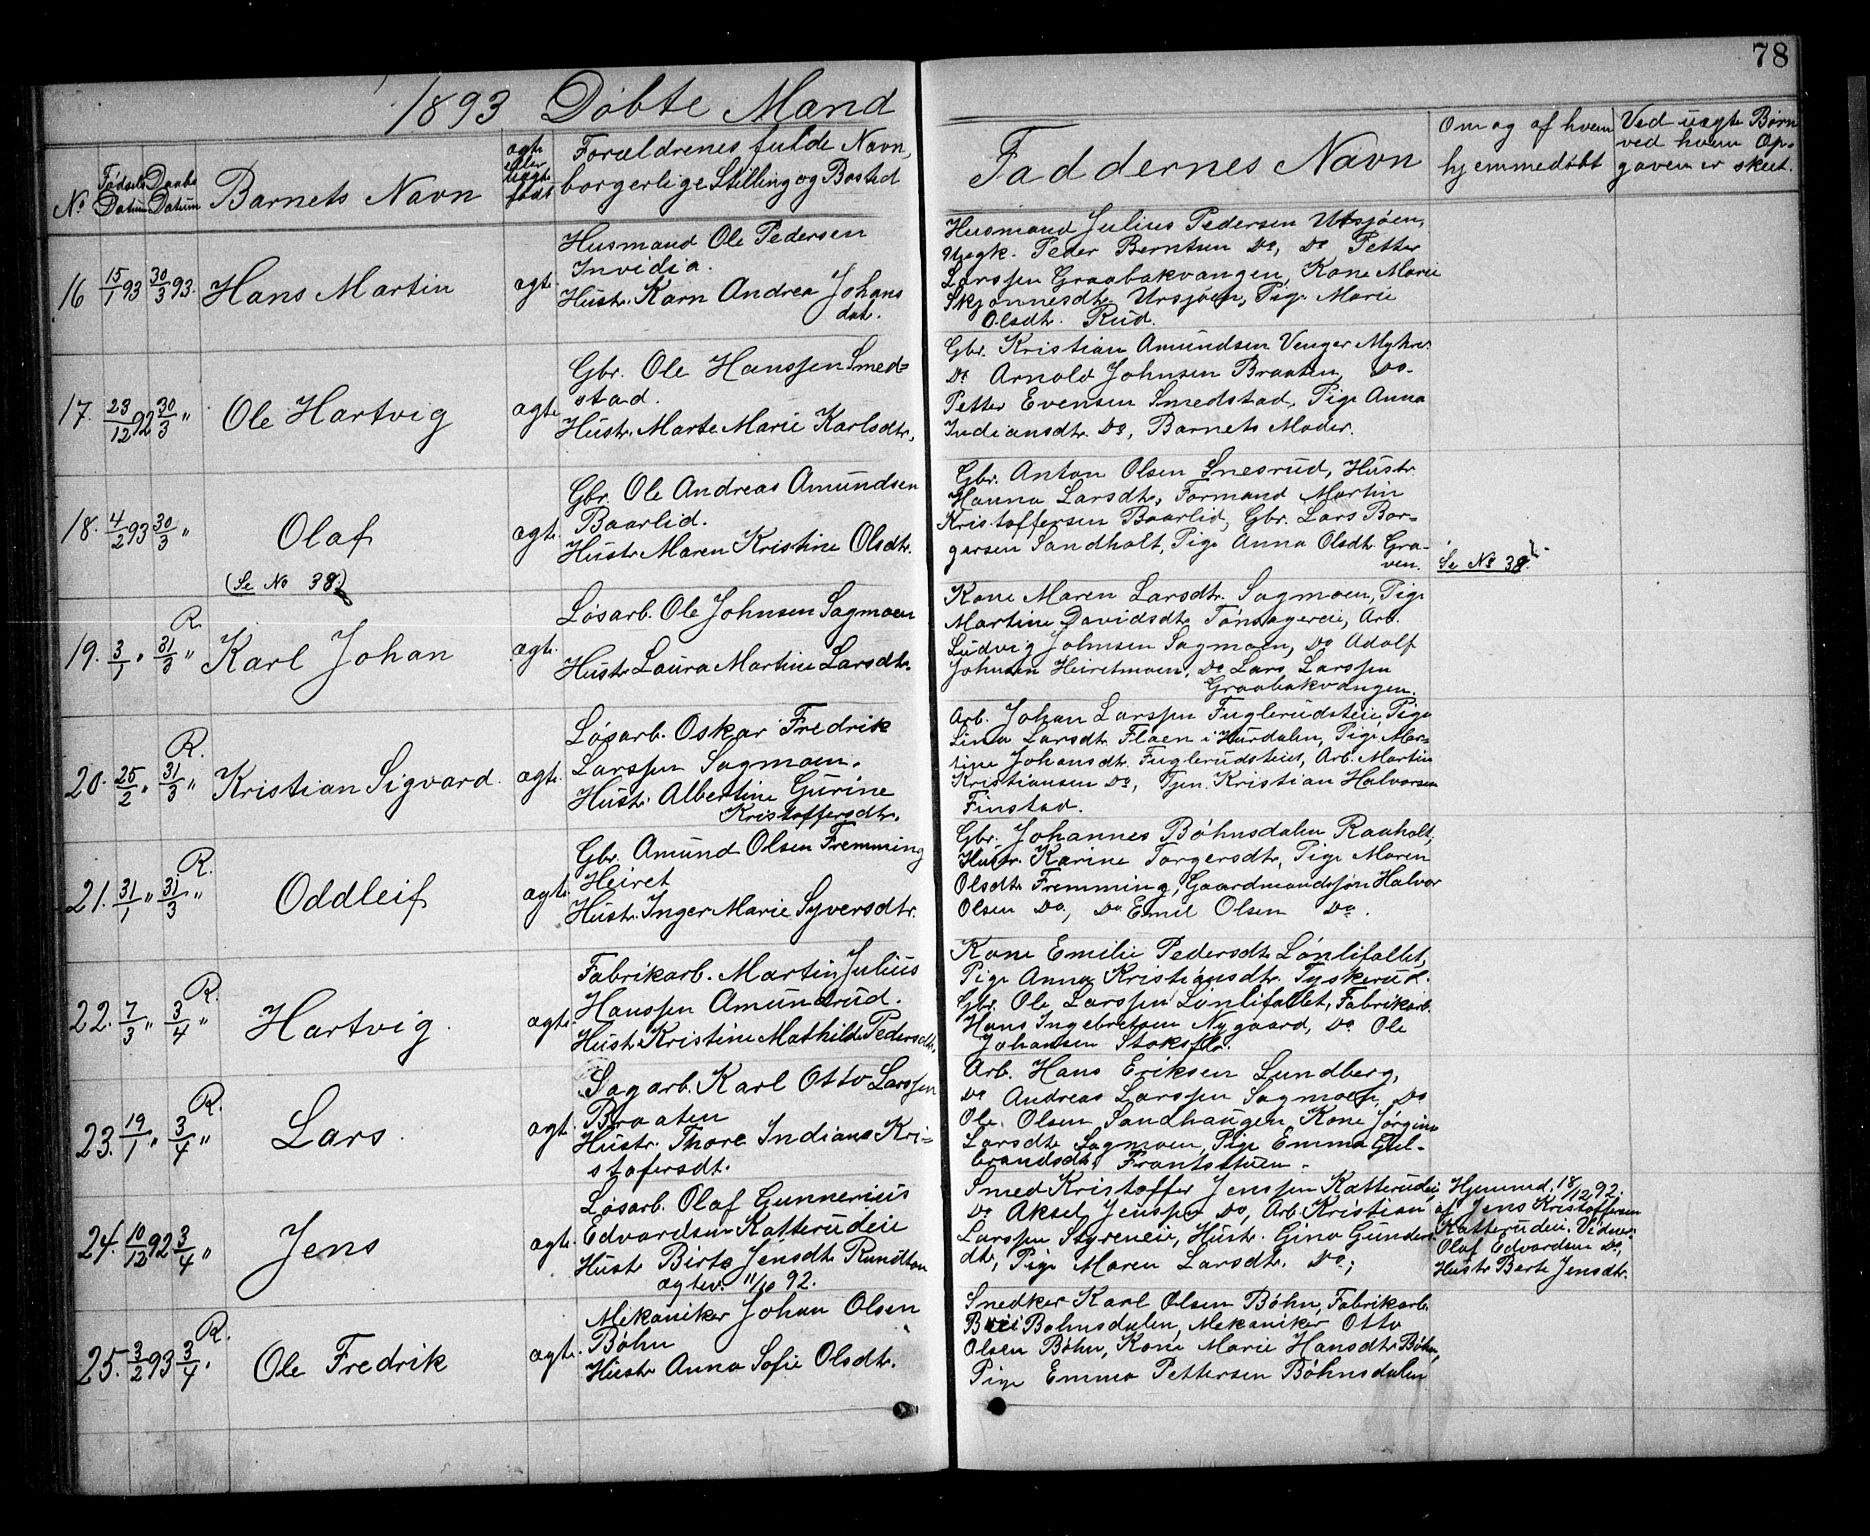 78
1893 Døbte Mand
No Fødsels Datum Daabs Datum Barnets Navn ægte eller uægte født Forældrenes fulde Navn, borgerlige Stilling og Bosted Faddernes Navn Om og af hvem hjemmedøbt Ved uægte Børn ved hvem Opgaven er skeet.
16 15/1 93 30/3 93. Hans Martin ægt.
Husmand Ole Pedersen
Invidia.
Hustr. Karn Andrea Johans
dat.
Husmand Julius Pedersen Utsjøen,
Ungk. Peder Berntsen Do, Do Petter
Larssen Graabækvangen, Kone Marie
Skjønnesdtr. Ursjøen, Pige Marie
Olsdtr. Rud.
17. 23/12 92 30/3 " Ole Hartvig ægte
Gbr. Ole Hanssen Smed=
stad.
Hustr. Marte Marie Karlsdtr.
Gbr. Kristian Amundsen Venger Myhrer
Do Arnold Johnsen Braaten, Do
Petter Evensen Smedstad, Pige Anna
Indiansdtr. Do, Barnets Moder.
18. 4/2 93 30/3 " Olaf ægt.
(Se No 38)
Gbr. Ole Andreas Amundsen
Baarlid.
Hustr. Maren Kristine Olsdtr.
Gbr. Anton Olsen Snesrud, Hustr
Hanna Larsdtr, Formand Martin
Kristoffersen Baarlid, Gbr. Lars Bor=
gersen Sandholt, Pige Anna Olsdtr. Gra-
ven.
Se No 38.
19. 3/1 " 31/3 " R. Karl Johan ægt.
Løsarb. Ole Johnsen Sagmoen
Hustr. Laura Martine Larsdtr.
Kone Maren Larsdtr. Sagmoen, Pige
Martine Davidsdtr Tønsagereie, Arb.
Ludvig Johnsen Sagmoen, Do Adolf
Johnsen Heiretmoen, Do Lars Larssen
Graabækvangen.
20. 25/2 " 31/3 " R. Kristian Sigvard ægt.
Løsarb. Oskar Fredrik
Larssen Sagmoen.
Hustr. Albertine Gurine
Kristoffersdtr.
Arb. Johan Larssen Fuglerudsteie, Pige
Lina Larsdtr Flaen i Hurdalen, Pige Mar=
tine Johansdtr. Fuglerudsteiet, Arb. Martin
Kristiansen Do, Tjen. Kristian Halvorsen
Finstad.
21. 31/1 " 31/3 " R. Oddleif ægt.
Gbr. Amund Olsen Fremming
Heiret
Hustr. Inger Marie Syversdtr.
Gbr. Johannes Bøhnsdalen Raaholt,
Hustr. Karine Torgersdtr, Pige Maren
Olsdtr Fremming, Gaardmandssøn Halvor
Olsen Do, Do Emil Olsen Do.
22. 7/3 " 3/4 " R. Hartvig. ægt.
Fabrikarb. Martin Julius
Hanssen Amundrud.
Hustr Kristine Mathilde Pedersdtr.
Kone Emilie Pedersdtr Lønlifallet,
Pige Anna Kristiansdtr. Tyskerud.
Gbr. Ole Larssen Lønlifallet, Fabrikarb.
Hans Ingebretsen Nygaard, Do Ole
Johansen
23. 19/1 " 3/4 " R. Lars. ægt.
Sagarb. Karl Otto Larssen
Braaten
Hustr. Thore Indiana Kri=
stofersdt.
Arb. Hans Eriksen Lundberg,
Do Andreas Larssen Sagmoen, Do
Ole Olsen Sandhaugen, Kone Jørgine
Larsdtr Sagmoen, Pige Emma Gul-
brandsdtr. Frantsstuen.
24. 10/12 92 3/4 " Jens ægt.
Løsarb. Olaf Gunnerius
Edvardsen Katterudeie
Hustr Birte Jensdtr Rundtom
ægtev. 11/10 92.
Smed Kristoffer Jenssen Katterudeie,
Do Aksel Jenssen Do, Arb. Kristian
Larssen Styreneie, Hustr. Gina Gunders
dtr, Pige Maren Larsdtr. Do;
Hjemmd. 18/12 92.
af Jens Kristoffersen
Katterudeie. Vidner:
Olaf Edvardsen Do,
Hustr Berte Jensdtr.
25. 3/2 93 3/4 . R. Ole Fredrik ægt.
Mekaniker Johan Olsen
Bøhn
Hustr Anna Sofie Olsdtr.
Snedker Karl Olsen Bøhn, Fabrikarb.
Bøhnsdalen, Mekaniker Otto
Olsen Bøhn, Kone Marie Hansdtr Bøhn,
Pige Emma Pettersen Bøhnsdalen